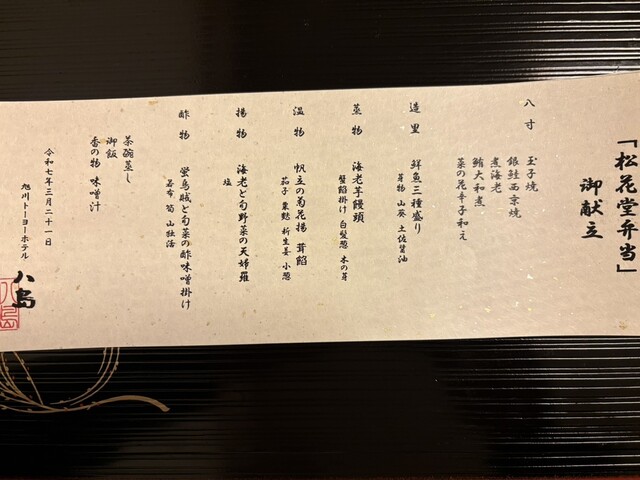 「松花堂弁当」
御献立
八寸 玉子焼
銀鮭西京焼
煮海老
鮪大和煮
菜の花辛子和え
造里 鮮魚三種盛り
芽物 山葵 土佐醤油
蒸物 海老芋饅頭
蟹餡掛け 白髪葱 木の芽
温物 帆立の菊花揚 茸餡
茄子 粟麩 針生姜 小葱
揚物 海老と旬野菜の天婦羅
塩
酢物 蛍烏賊と旬菜の酢味噌掛け
若布 筍 山独活
茶碗蒸し
御飯
香の物 味噌汁
令和七年三月二十一日
旭川トーヨーホテル
八島